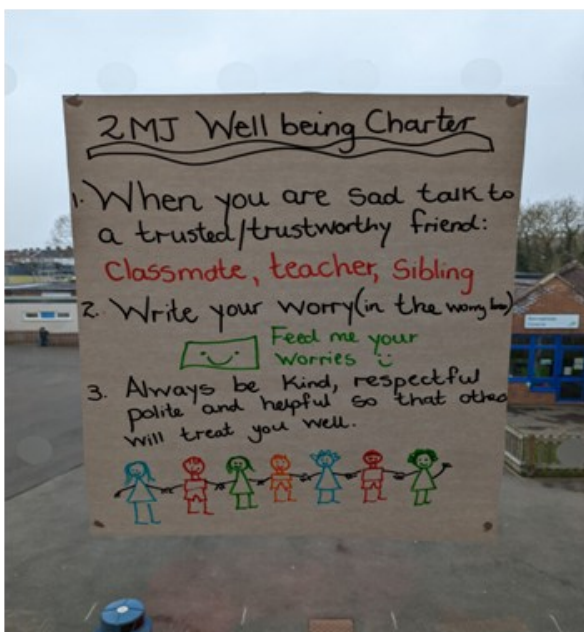 2MJ Well being Charter
1. When you are sad talk to
a trusted/trustworthy friend:
Classmate, teacher, Sibling
2. Write your worry (in the worry box)
Feed me your
worries
3. Always be kind, respectful
polite and helpful so that others
will treat you well.